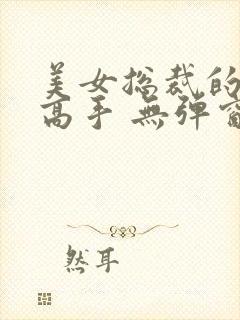 美女總裁的
高手 無彈窗
然耳